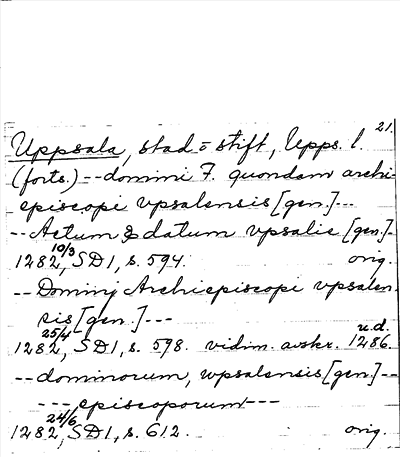 21.
Uppsala, stad o stift, Upps. l.
(forts.) -- domini F. quondam archi-
episcopi vpsalensis [gen.] ---
-- Actum & datum vpsalie [gen.] -
1282 10/3, SD1, s. 594. orig.
-- Dominj Archiepiscopi vpsalen-
sis [gen.] ---
1282 25/4, SD1, s. 598. vidim. avskr. u.d. 1286.
-- dominorum, wpsalensis [gen.] --
--- episcoporum ---
1282 24/6, SD1, s. 612. orig.